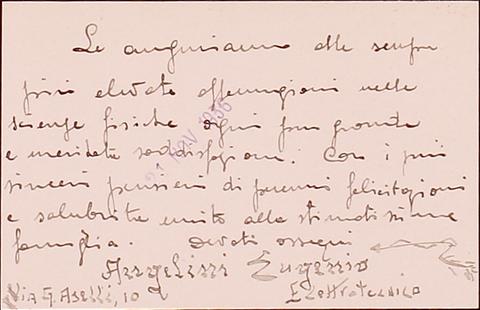 Le auguriamo alle sempre
più elevate affermazioni nelle
scienze fisiche ogni più grande
e meritata soddisfazione. Con i più
sinceri pensieri di perenni felicitazioni
e salubrità unito alla stimatissima
famiglia. Devoti ossequi
Angelini Eugenio
Via G. Aselli, 10 Elettrotecnico
NOV 1936